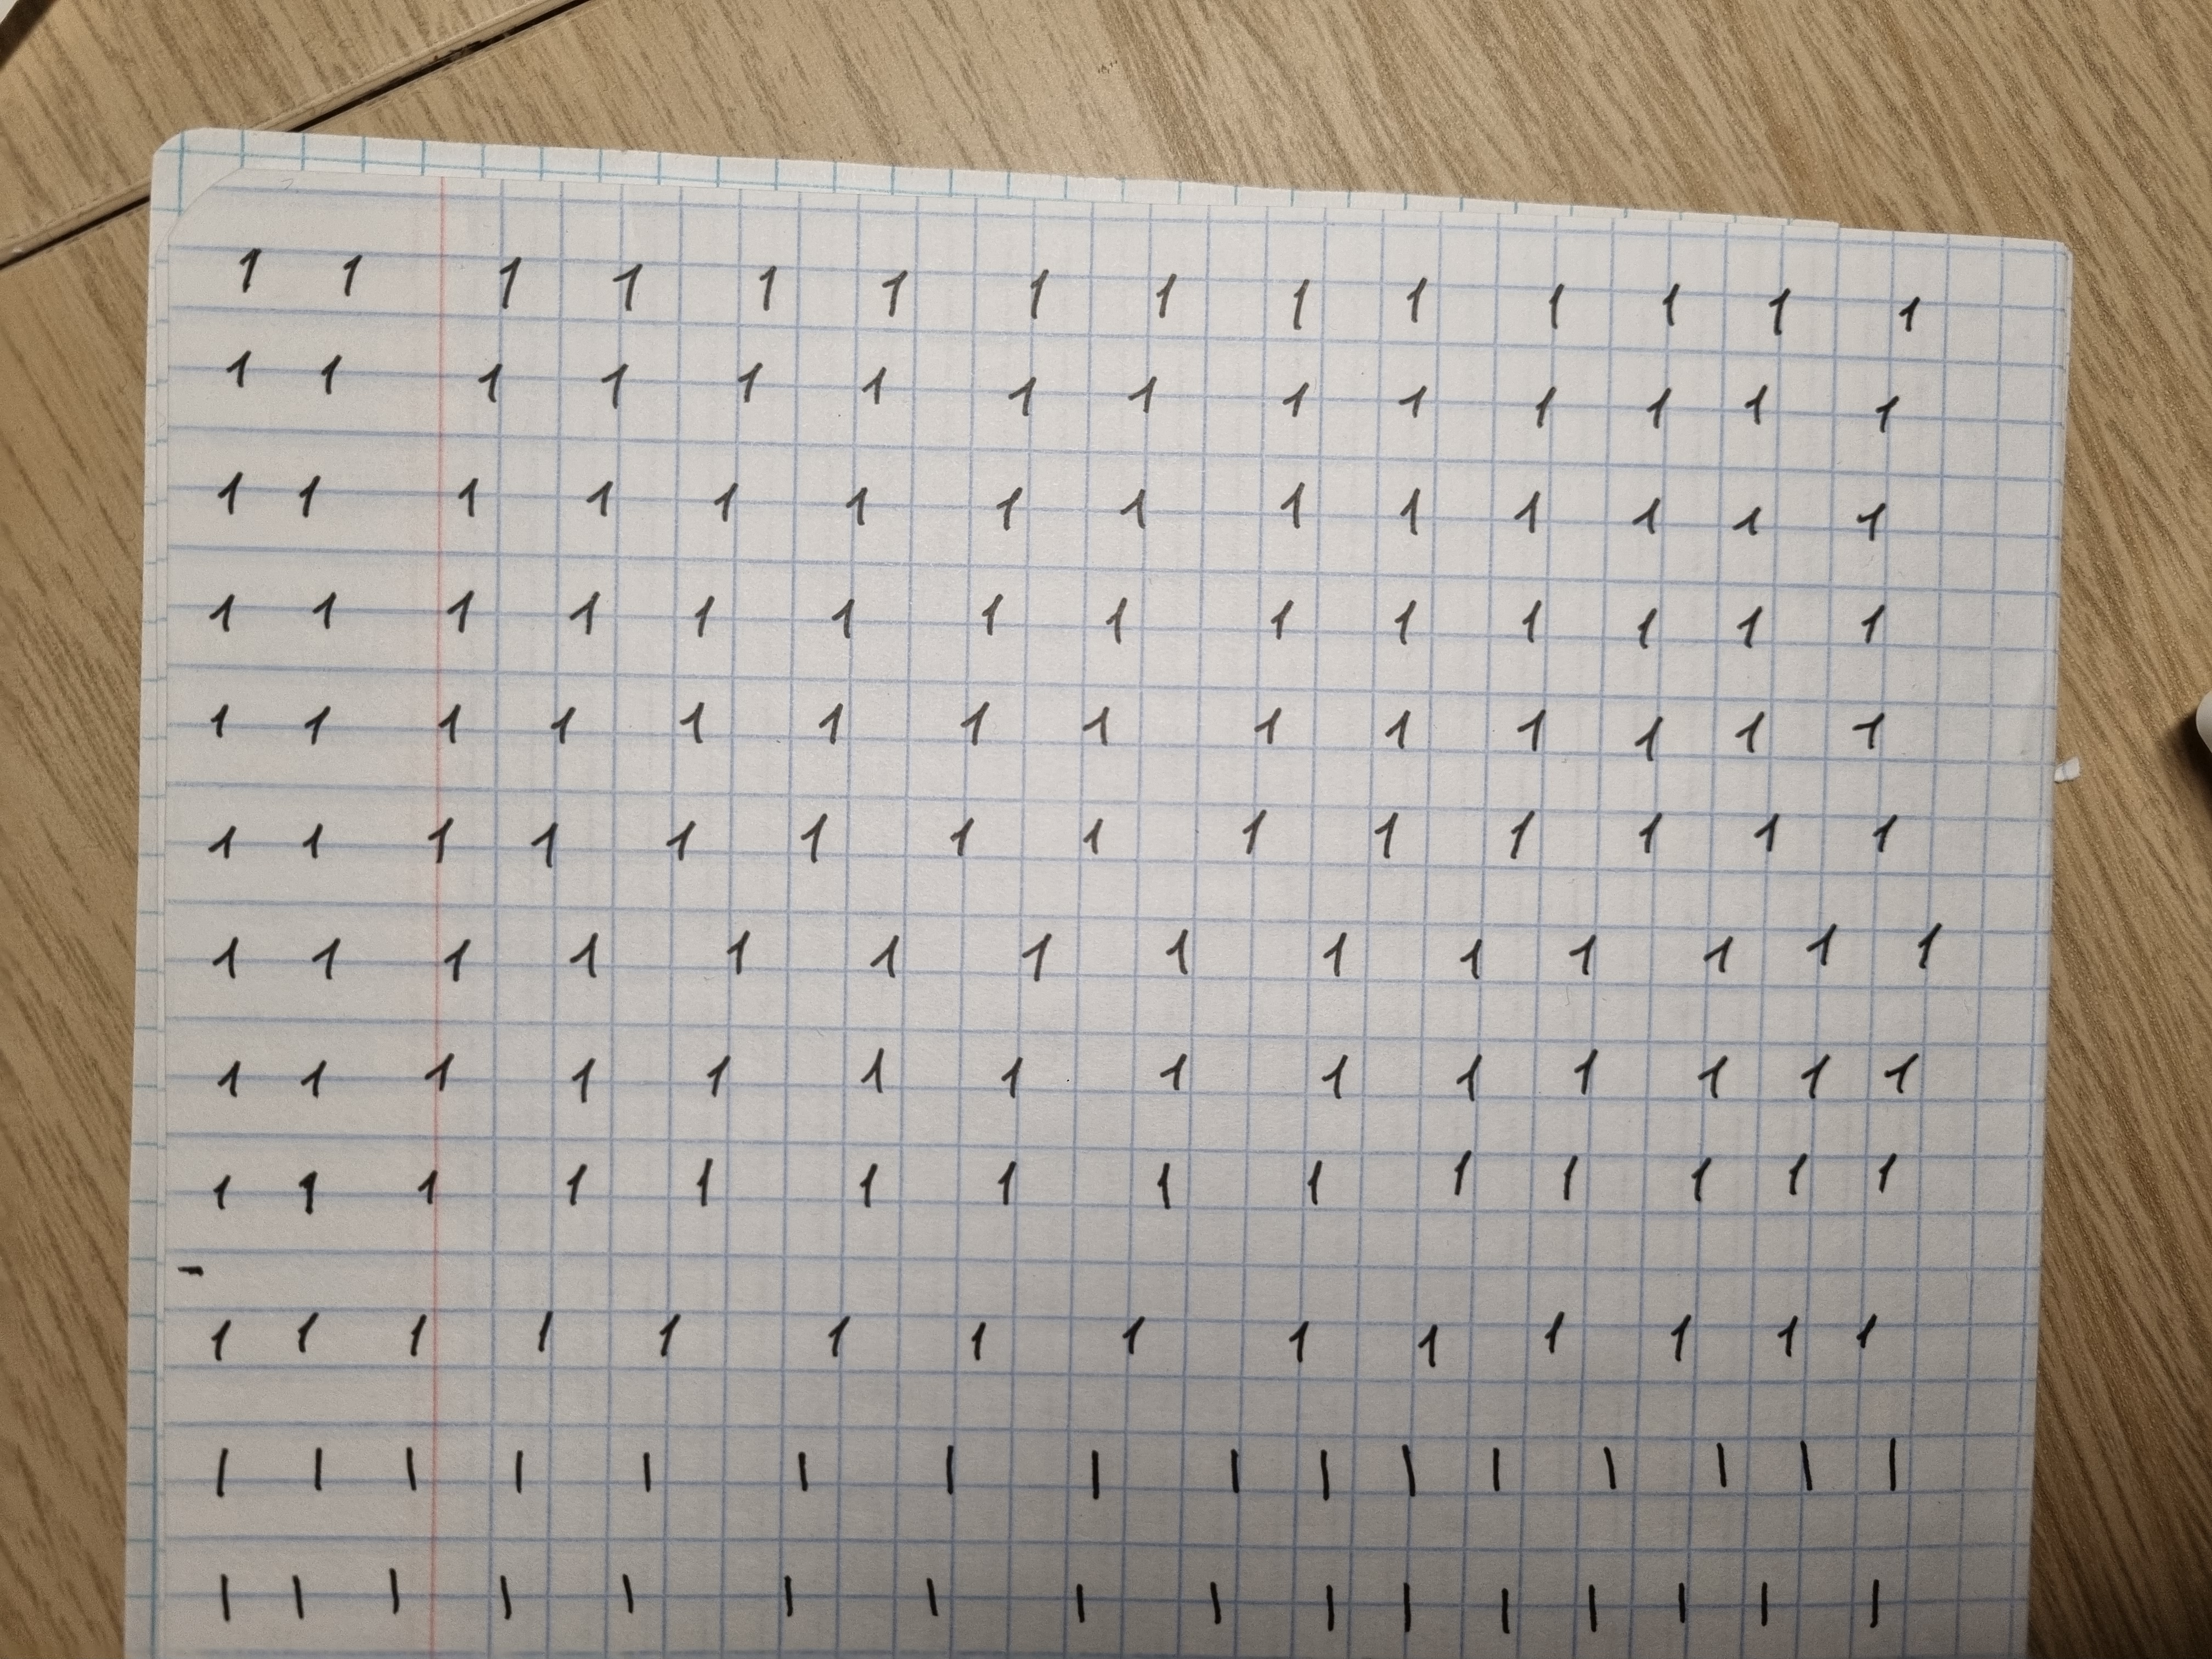 1 1 1 1 1 1 1 1 1 1 1 1 1 1
1 1 1 1 1 1 1 1 1 1 1 1 1 1
1 1 1 1 1 1 1 1 1 1 1 1 1 1
1 1 1 1 1 1 1 1 1 1 1 1 1 1
1 1 1 1 1 1 1 1 1 1 1 1 1 1
1 1 1 1 1 1 1 1 1 1 1 1 1 1
1 1 1 1 1 1 1 1 1 1 1 1 1 1
1 1 1 1 1 1 1 1 1 1 1 1 1 1
1 1 1 1 1 1 1 1 1 1 1 1 1 1
-
1 1 1 1 1 1 1 1 1 1 1 1 1 1
| | | | | | | | | | | | | | | |
| | | | | | | | | | | | | | | |